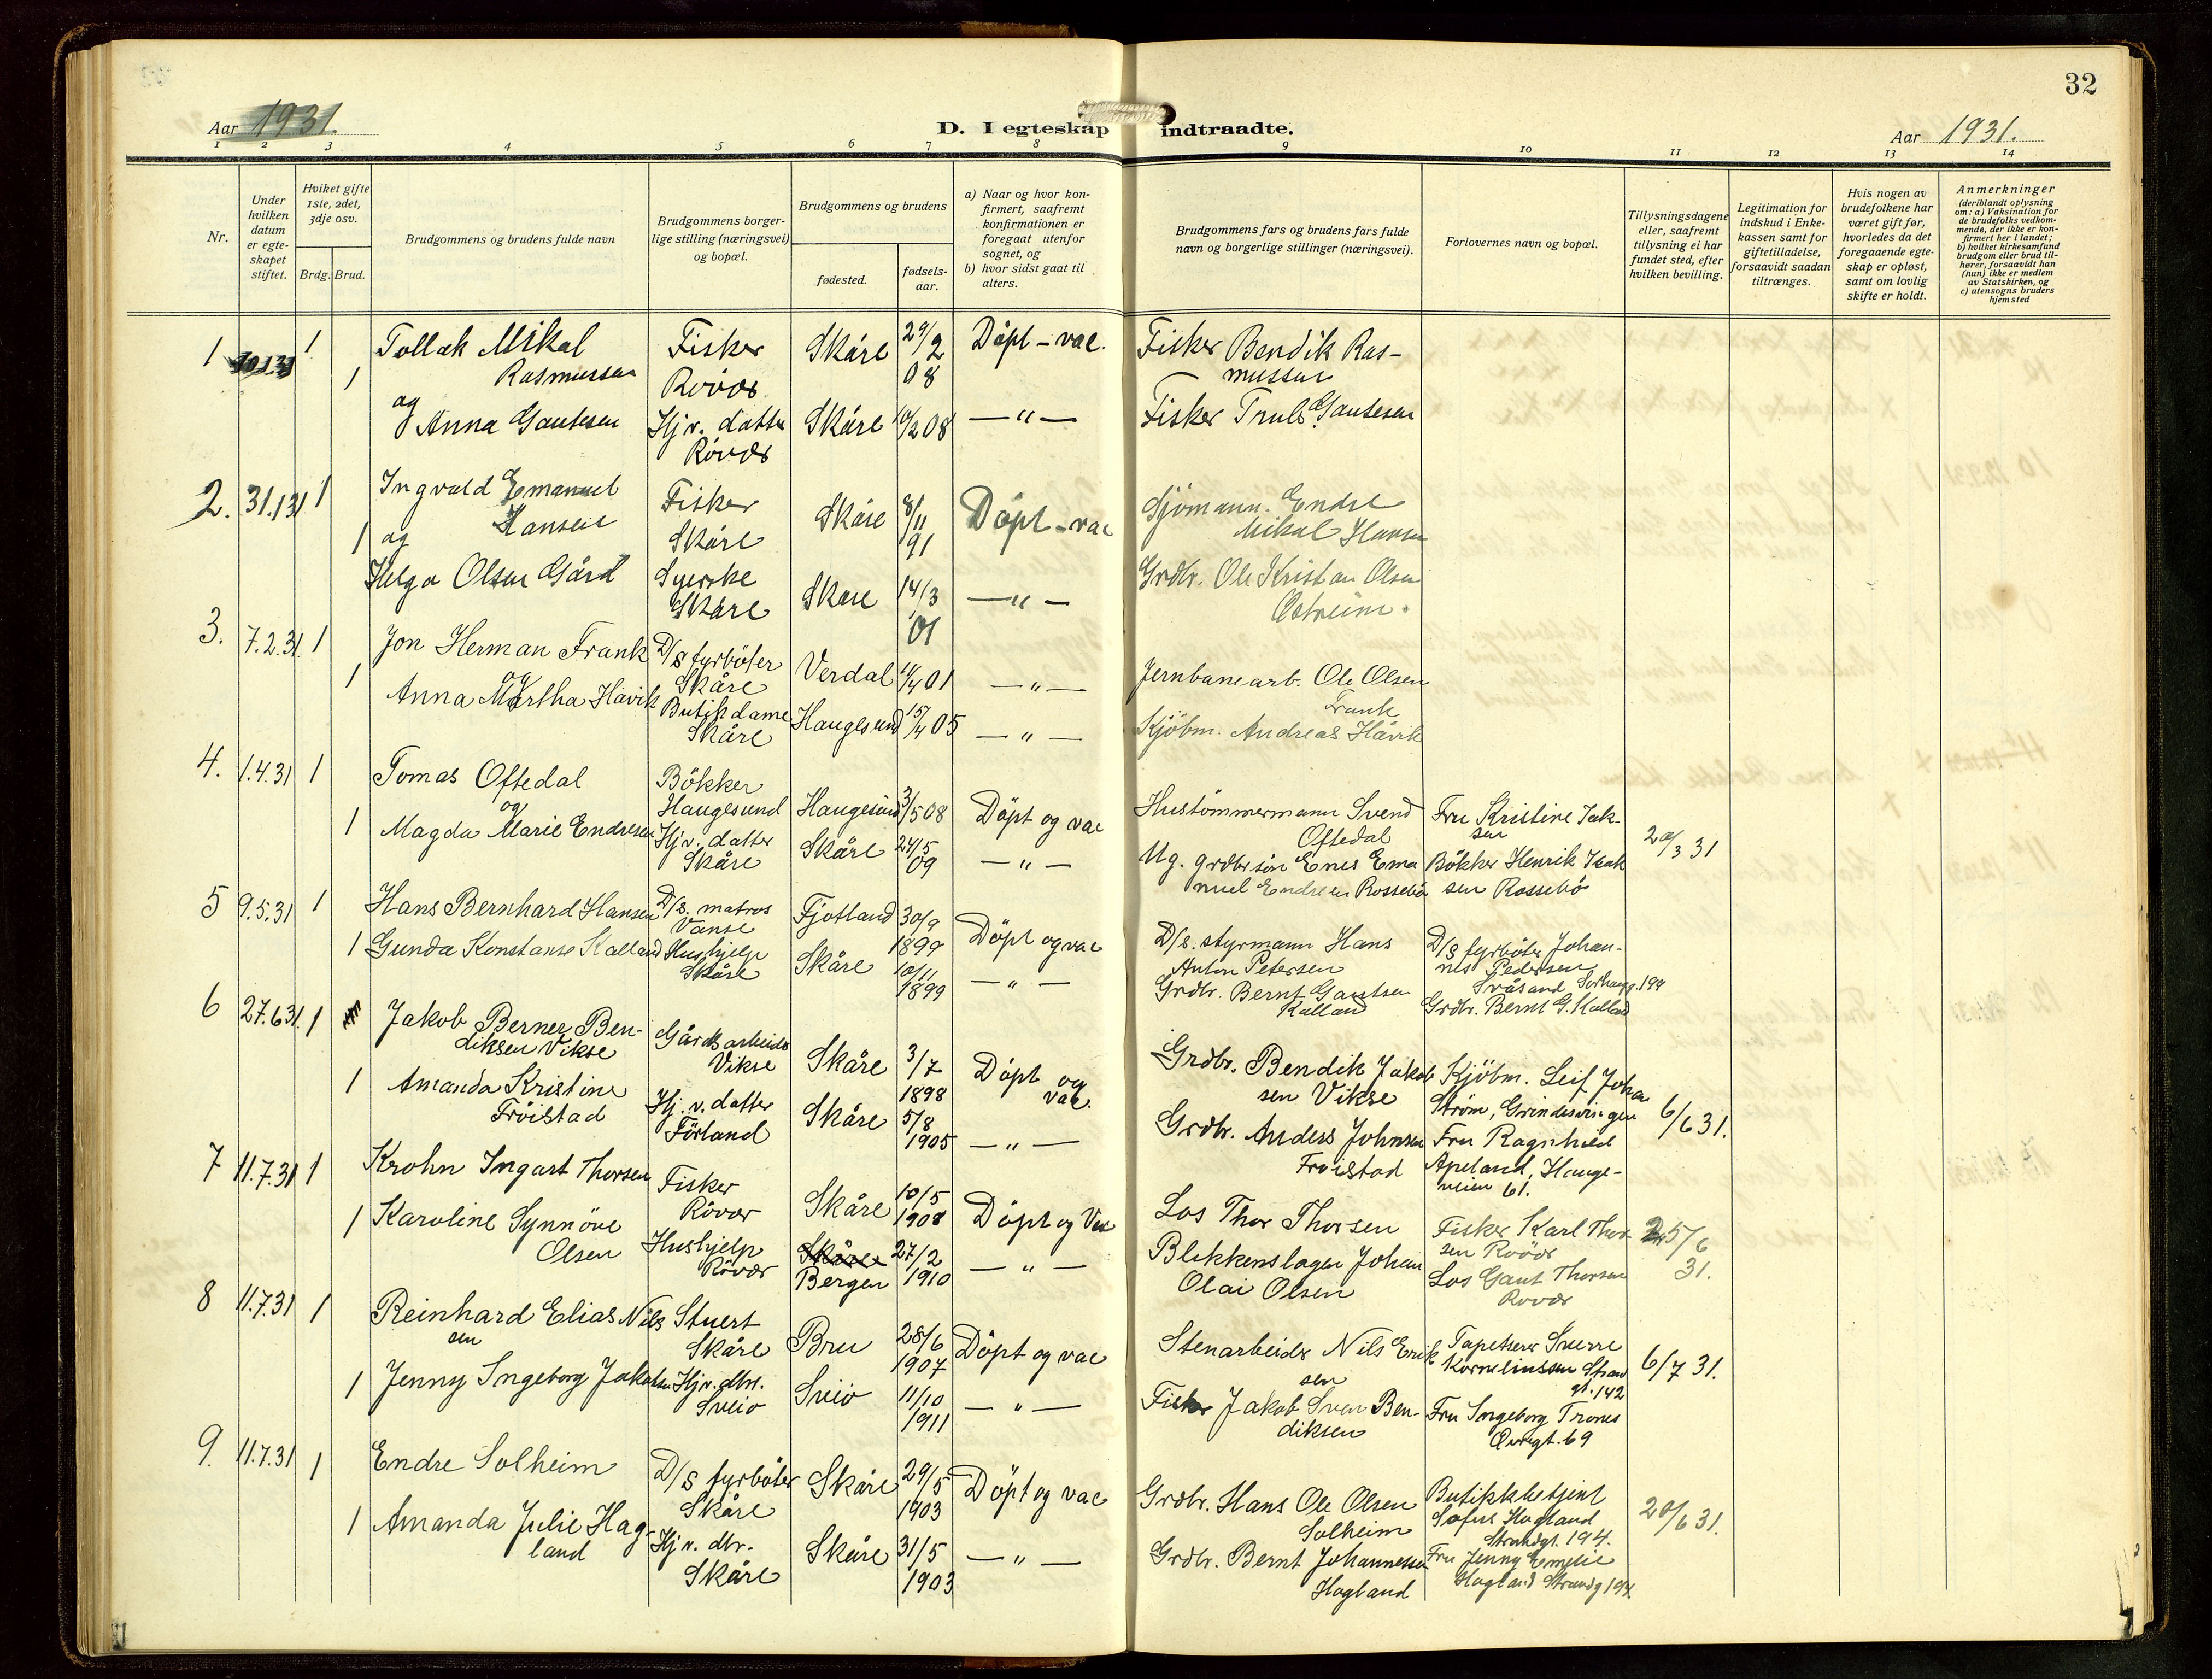 32
Aar 1931.
D. I egteskap indtraadte.
Aar 1931.
1 2 3 4 5 6 7 8 9 10 11 12 13 14
Nr.
Under hvilken datum er egte-skapet stiftet.
Hviket gifte 1ste, 2det, 3dje osv.
Brdg. Brud.
Brudgommens og brudens fulde navn
Brudgommens borger-lige stilling (næringsvei) og bopæl.
Brudgommens og brudens
fødested.
fødsels-aar.
a) Naar og hvor kon-firmert, saafremt konfirmationen er foregaat utenfor sognet, og
b) hvor sidst gaat til alters.
Brudgommens fars og brudens fars fulde navn og borgerlige stillinger (næringsvei).
Forlovernes navn og bopæl.
Tillysningsdagene eller, saafremt tillysning ei har fundet sted, efter hvilken bevilling.
Legitimation for indskud i Enke-kassen samt for giftetilladelse, forsaavidt saadan tiltrænges.
Hvis nogen av brudefolkene har været gift før, hvorledes da det foregaaende egte-skap er opløst, samt om lovlig skifte er holdt.
Anmerkninger
(deriblandt oplysning om: a) Vaksination for de brudefolks vedkom-mende, der ikke er kon-firmert her i landet;
b) hvilket kirkesamfund brudgom eller brud til-hører, forsaavidt han (hun) ikke er medlem av Statskirken, og
c) utensogns bruders hjemsted
1 1 Tollak Mikal Rasmussen Fisker Røvær Skåre 29/2 08 Döpt - vac. Fisker Bendik Ras-mussen
1 og Anna Gautesen Hj v. datter Røvær Skåre 10/2 08 — " — Fisker Truls Gautesen
2. 31.1 31 1 Ingvald Emanuel Hansen Fisker Skåre Skåre 8/11 91 Döpt - vac Sjömann. Endre Mikal Hansen
1 og Helga Olsen Gård Syerske Skåre Skåre 14/3 01 — " — Grdbr. Ole Kristian Olsen Østreim.
3. 7.2.31 1 Jon Herman Frank D/s fyrböter Skåre Verdal 11/4 01 — " — Jernbanearb. Ole Olsen Frank
1 og Anna Martha Håvik Butikdame Skåre Haugesund 15/4 05 — " — Kjöbm. Andreas Håvik
4. 1.4.31 1 Tomas Oftedal Bökker Haugesund Haugesund 3/5 08 Döpt og vac Hustömmermann Svend Oftedal Fru Kristine Isak-sen 20/3 31
1 og Magda Marie Endresen Hj v. datter Skåre Skåre 24/5 09 — " — Ug. grdbr sön Enes Ema nuel Endresen Rossebö Bökker Henrik Isak sen Rossebö
5 9.5.31 1 Hans Bernhard Hansen D/s. matros Vanse Fjotland 30/9 1899 Döpt og vac D/s. styrmann Hans Anton Petersen D/s fyrböter Johan-nes Pedersen Svåsand Sörhaug. 199
1 Gunda Konstanse Kalland Hushjelp Skåre Skåre 10/11 1899 — " — Grdbr. Bernt Gautsen Kalland Grdbr. Bernt G. Kalland
6 27.6 31. 1 Jakob Berner Ben-diksen Vikse Gårdsarbeider Vikse Skåre 3/7 1898 Döpt og vac. Grdbr. Bendik Jakob sen Vikse Kjöbm. Leif Johan Ström, Grindesvingen 6/6 31.
1 Amanda Kristine Fröistad Hj. v. datter Förland Skåre 5/8 1905 — " — Grdbr. Anders Johnsen Fröistad Fru Ragnhild Apeland, Hauge-veien 61.
7 11.7.31 1 Krohn Ingart Thorsen Fisker Rövær Skåre 10/5 1908 Döpt og Vac Los Thor Thorsen Fisker Karl Thor sen Rövær 25/6 31.
1 Karoline Synnöve Olsen Hushjelp Rövær Skåre Bergen 27/2 1910 — " — Blikkenslager Johan Olai Olsen Los Gaut Thorsen Rovær
8 11.7.31 1 Reinhard Elias Nils sen Stuert Skåre Bru 28/6 1907 Döpt og vac Stenarbeider Nils Erik sen Tapetserer Sverre Kornelinssen Strand gt. 142 6/7 31.
1 Jenny Ingeborg Jakobsen Hj v. dtr. Sveio Sveio 11/10 1911 — " — Fisker Jakob Sven Ben-diksen Fru Ingeborg Trones Øvregt. 69
9. 11.7.31 1 Endre Solheim D/s fyrböter Skåre Skåre 29/5 1903 Döpt og vac Grdbr. Hans Ole Olsen Solheim Butikkbetjent Sofus Hagland Strandgt. 194. 20/6 31.
1 Amanda Julie Hag-land Hj v. dtr. Skåre Skåre 31/5 1903 — " — Grdbr. Bernt Johannessen Hagland Fru Jenny Emelie Hagland Strandg 194